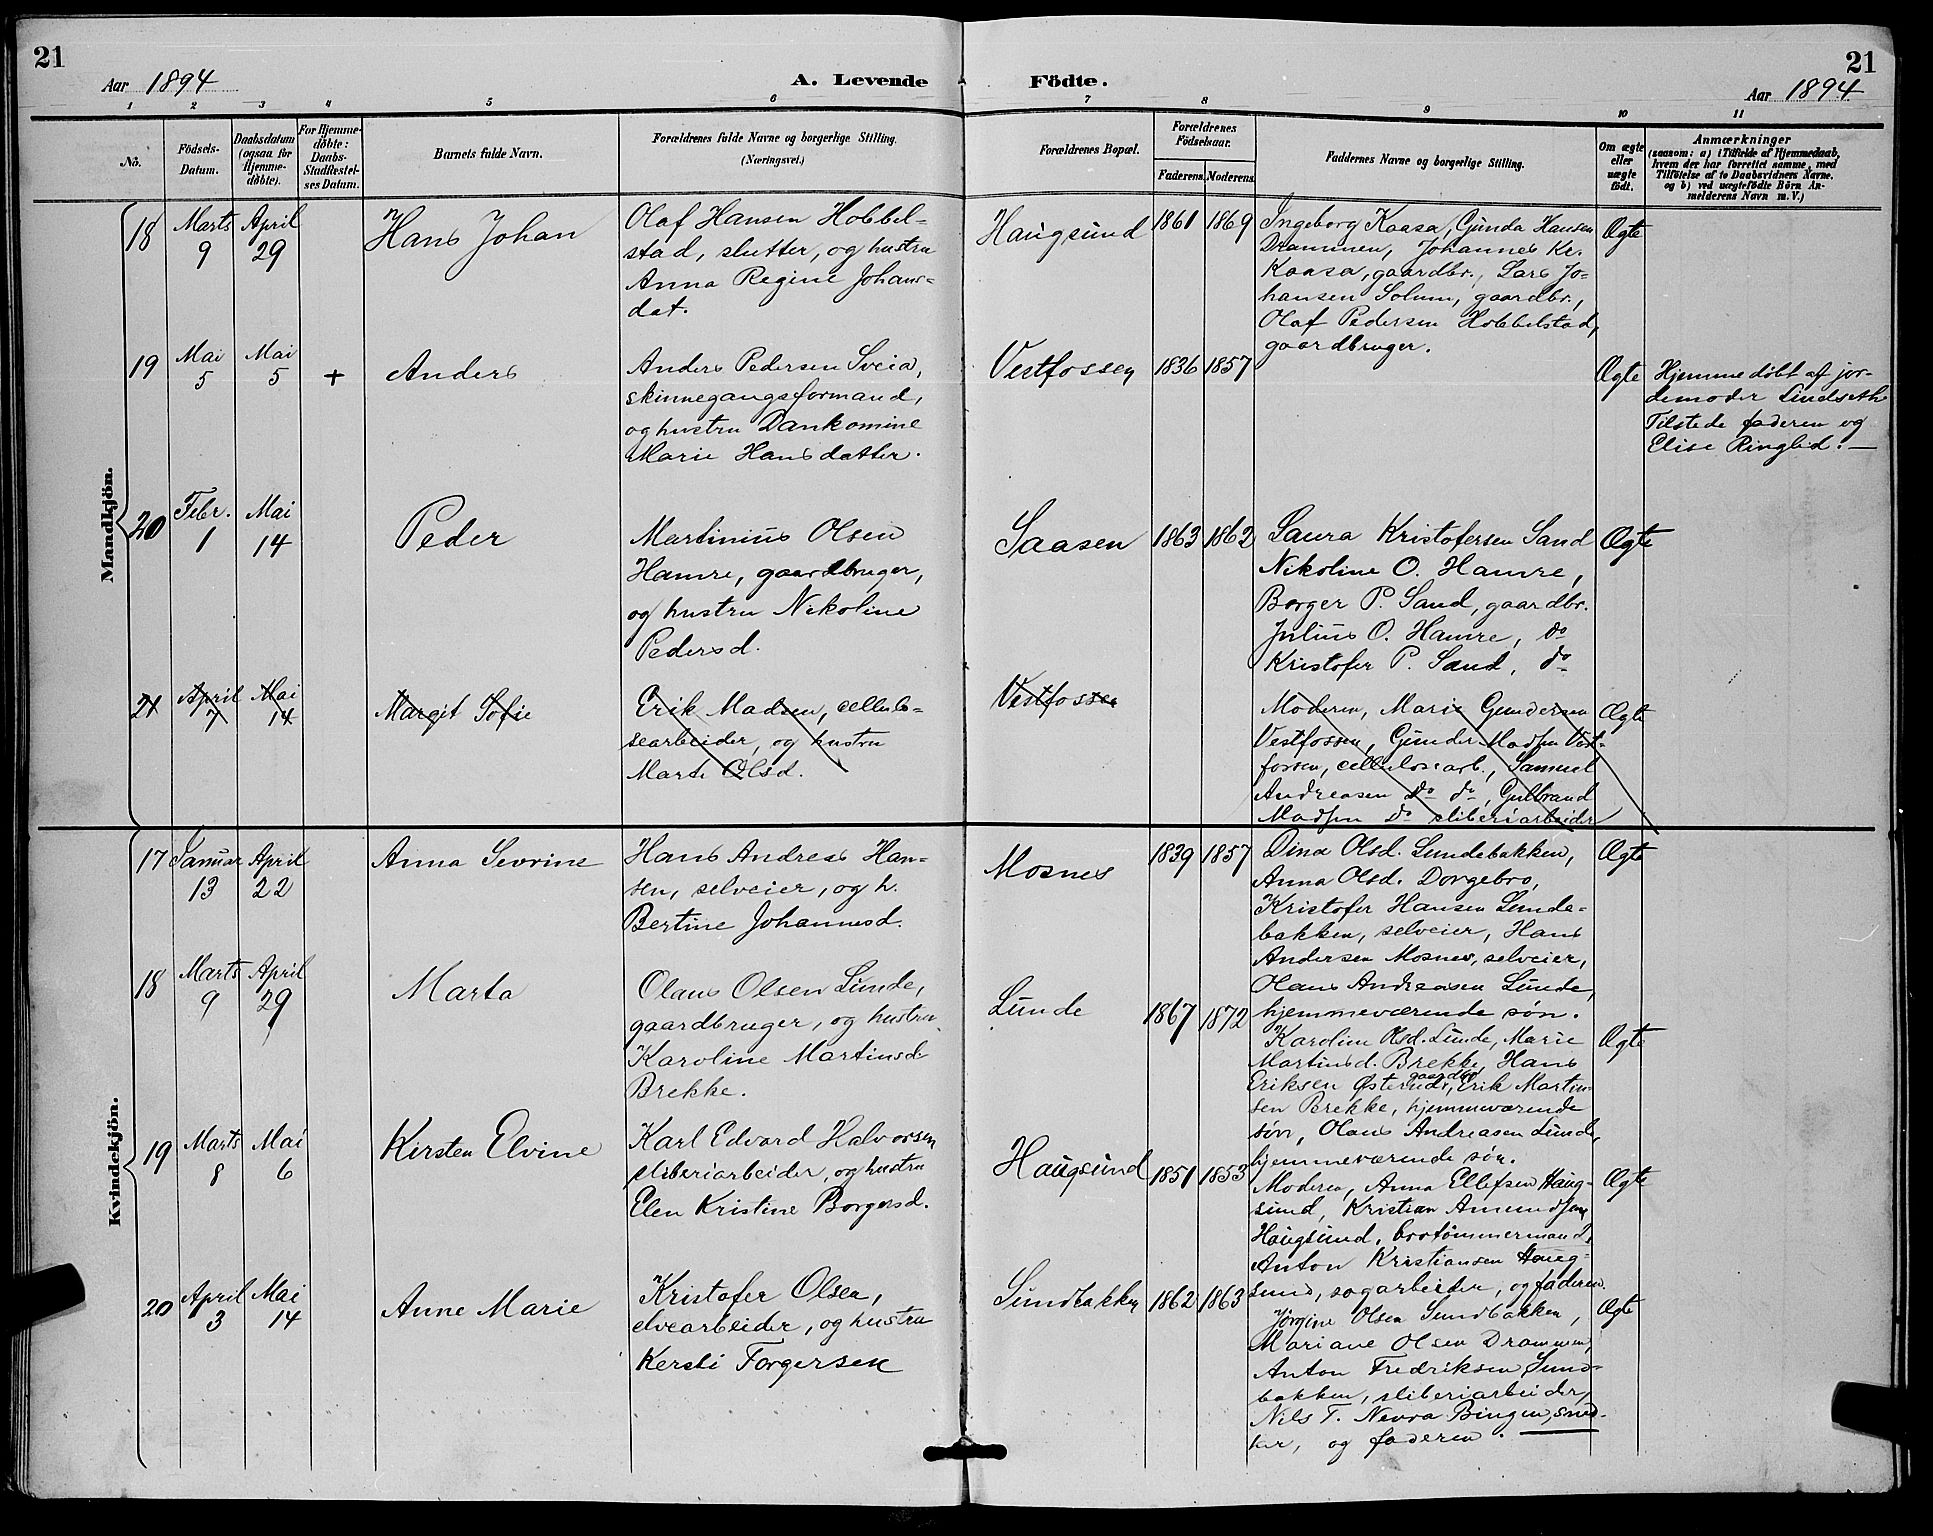 21
21
Aar 1894
A. Levende Födte.
Aar 1894
1 2 3 4 5 6 7 8 9 10 11
No.
Födsels-
Datum.
Daabsdatum
(ogsaa for
Hjemme-
døbte).
For Hjemme-
døbte:
Daabs-
Stadfæstel-
ses Datum.
Barnets fulde Navn.
Forældrenes fulde Navne og borgerlige Stilling.
(Næringsvei.)
Forældrenes Bopæl.
Forældrenes
Födselsaar.
Faderens. Moderens.
Faddernes Navne og borgerlige Stilling.
Om ægte
eller
uægte
født.
Anmærkninger
(saasom: a) i Tilfælde af Hjemmedaab,
hvem der har forrettet samme, med
Tilföielse af to Daabsvidners Navne.
og b) ved uægtefödte Börn An-
melderens Navn m. V.)
Mandkjön.
18
Marts
9
April
29
Hans Johan
Olaf Hansen Hobbel-
stad, slutter, og hustru
Anna Regine Johans-
dat.
Haugsund
1861 1869
Ingeborg Kaasa, Gunda Hansen
Drammen, Johannes Kr.
Kaasa, gaardbr., Lars Jo-
hansen Solum, gaardbr.,
Olaf Pedersen Hobbelstad,
gaardbruger.
Ægte
19
Mai
5
Mai
5
+
Anders
Anders Pedersen Sveia,
skinnegangsformand,
og hustru Dankomine
Marie Hansdatter.
Vestfossen
1836 1857
Ægte
Hjemmedøbt af jor-
demoder Lindseth
Tilstede faderen og
Elise Ringlid. —
20
Febr.
1
Mai
14
Peder
Martinius Olsen
Hamre, gaardbruger,
og hustru Nikoline
Pedersd.
Saasen
1863 1862
Laura Kristofersen Sand
Nikoline O. Hamre,
Borger P. Sand, gaardbr.
Julius O. Hamre, do
Kristofer P. Sand, do
Ægte
21
April
7
Mai
14
Margit Sofie
Erik Madsen, cellulo-
searbeider, og hustru
Marte Olsd.
Vestfossen
Moderen, Marie Gundersen
Vestfossen, Gunder Madsen Vest-
fossen, cellulosearb., Samuel
Andreasen do do, Gulbrand
Madsen do sliberiarbeider
Ægte
Kvindekjön.
17
Januar
13
April
22
Anna Sevrine
Hans Andreas Han-
sen, selveier, og h.
Bertine Johannesd.
Mosnes
1839 1857
Dina Olsd. Lundebakken,
Anna Olsd. Dorgebro,
Kristofer Hansen Lunde-
bakken, selveier, Hans
Andersen Mosnes, selveier,
Olaus Andreasen Lunde,
hjemmeværende søn.
Ægte
18
Marts
9
April
29
Marta
Olaus Olsen Lunde,
gaardbruger, og hustru
Karoline Martinsd.
Brekke.
Lunde
1867 1872
Karoline Olsd. Lunde, Marie
Martinsd. Brekke, Hans
Eriksen Østerud, gaardbr., Erik Martin-
sen Brekke, hjemmeværende
søn, Olaus Andreasen Lunde,
hjemmeværende søn.
Ægte
19
Marts
8
Mai
6
Kirsten Elvine
Karl Edvard Halvorsen
sliberiarbeider, og hustru
Elen Kristine Borgersd.
Haugsund
1851 1853
Moderen, Anna Ellefsen Haug-
sund, Kristian Amundsen
Haugsund, brotømmermand,
Anton Kristiansen Haug-
sund, sagarbeider, og faderen.
Ægte
20
April
3
Mai
14
Anne Marie
Kristofer Olsen,
elvearbeider, og hustru
Kersti Torgersen
Sundbakken
1862 1863
Jørgine Olsen Sundbakken,
Mariane Olsen Drammen,
Anton Fredriksen Sund-
bakken, sliberiarbeider,
Nils T. Nevra Bingen, sned-
ker, og faderen.
Ægte